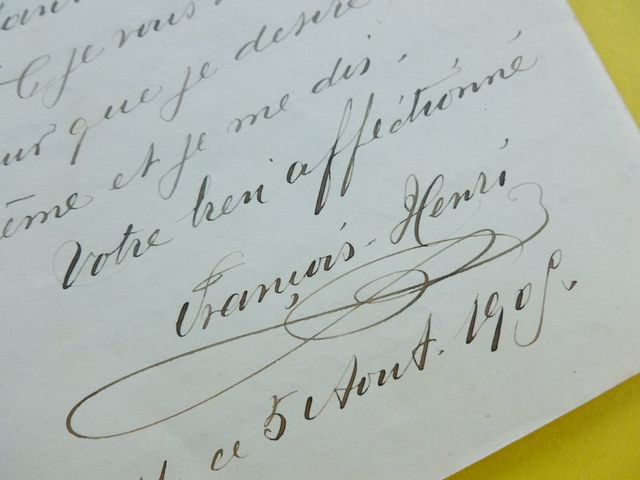 je vous
que je désire
ême et je me dis,
Votre bien affectionné
François-Henri
ce 5 Août. 1908.